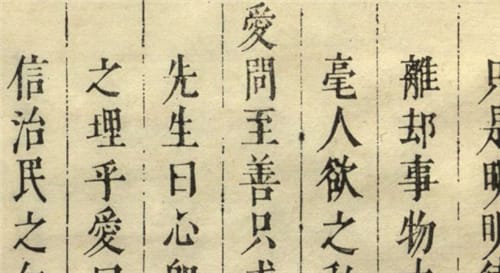 只是明明
離却事物
毫人欲之私
愛問至善只求
先生曰心即
之理乎愛曰
信治民之